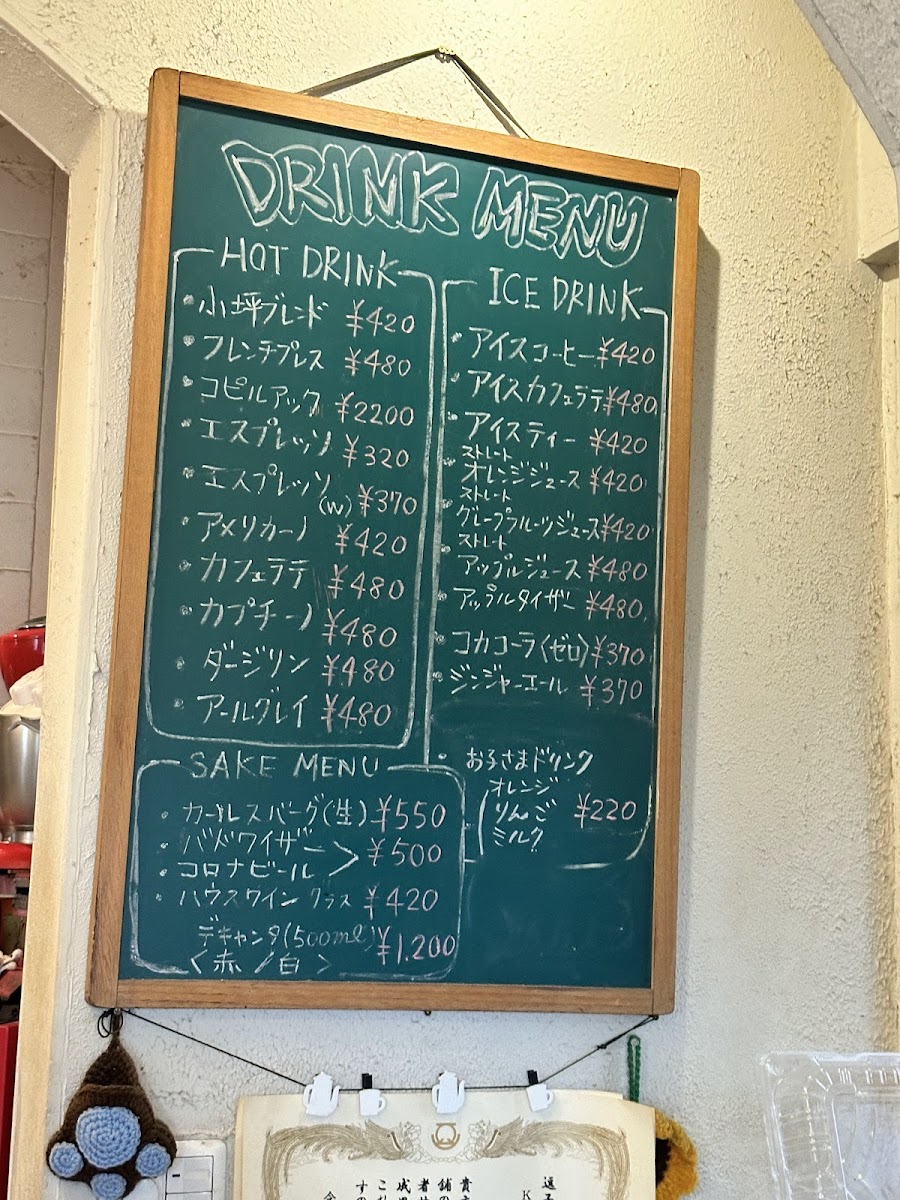 DRINK MENU
HOT DRINK
・小坪ブレンド ¥420
・フレンチプレス ¥480
・コピルアック ¥2200
・エスプレッソ ¥320
・エスプレッソ(W) ¥370
・アメリカーノ ¥420
・カフェラテ ¥480
・カプチーノ ¥480
・ダージリン ¥480
・アールグレイ ¥480
ICE DRINK
・アイスコーヒー ¥420
・アイスカフェラテ ¥480
・アイスティー ¥420
ストレート
・オレンジジュース ¥420
ストレート
・グレープフルーツジュース ¥420
ストレート
・アップルジュース ¥480
・アップルタイザー ¥480
・コカコーラ(ゼロ) ¥370
・ジンジャーエール ¥370
・お子さまドリンク
オレンジ
りんご ¥220
ミルク
SAKE MENU
・カールスバーグ(生) ¥550
・バドワイザー
・コロナビール > ¥500
・ハウスワイン グラス ¥420
デキャンタ(500ml) ¥1,200
<赤/白>